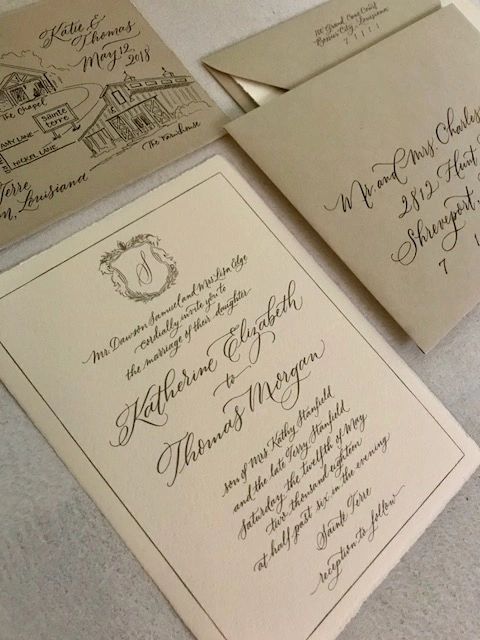 Katie &
Thomas
May 12
2018
The Chapel
Sainte
Terre
AMY LANE
NICKEL LANE
The Farmhouse
Terre
Louisiana
Bossier City, Louisiana
7 1 1 1 1
Mr. and Mrs. Charles
2812 Hunt
Shreveport,
7 1
S
Mr. Dawson Samuel and Mrs. Lisa
cordially invite you to
the marriage of their daughter
Katherine Elizabeth
to
Thomas Morgan
son of Mrs. Kathy Stanfield
and the late Terry Stanfield
Saturday the twelfth of May
two thousand eighteen
at half past six in the evening
Sainte Terre
reception to follow